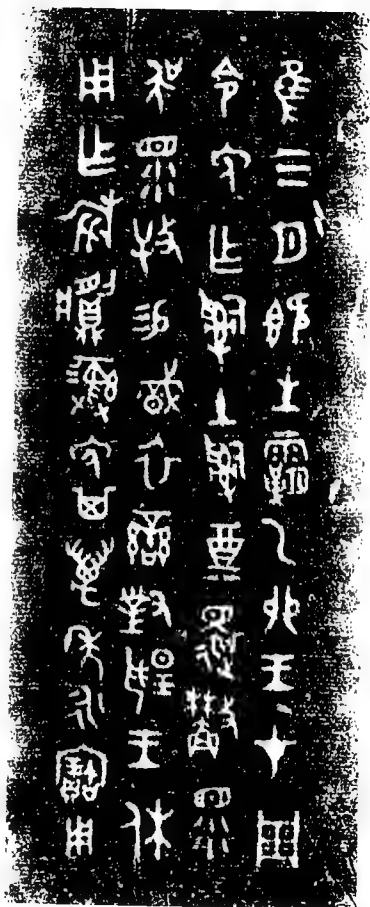 隹三月既生霸乙卯王才周
令免乍𤔲土𤔲奠還廩眔
吳眔牧易戠衣䜌對揚王休
用乍旅𩱧彝免其萬年永寶用